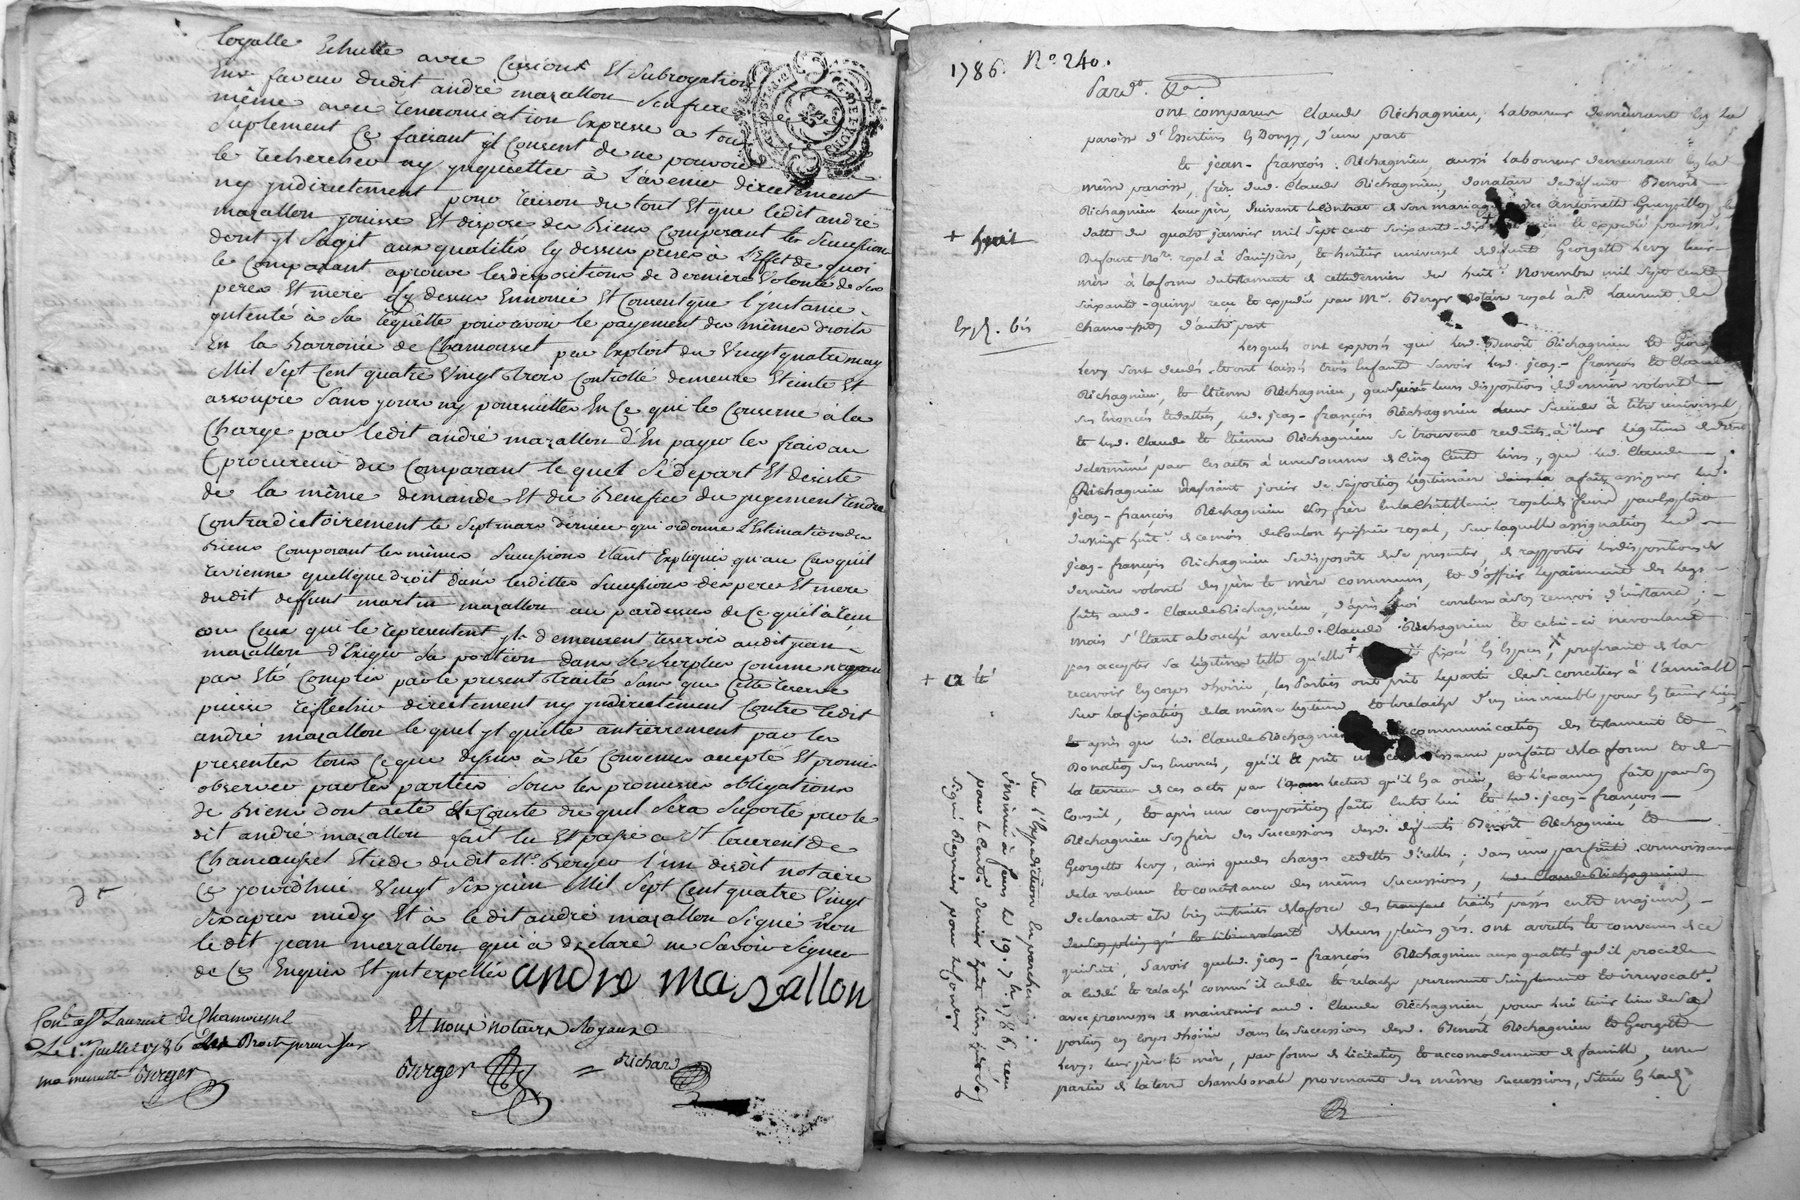 loyalle Echutte avec Cession Et Subrogation
En faveur dudit andré mazallon Son frere
même avec renonciation Expresse a tout
Suplement Ce faisant yl Consent de ne pouvoir
le rechercher ny ynquietter à L'avenir directement
ny yndirectement pour raison du tout Et que ledit andré
mazallon jouisse Et dispose des Biens Composant les Successions
dont yl Sagit aux qualités Cy dessus prises à L'effet de quoi
le Comparant aprouve les dispositions de derniere Volonté de Ses
pere Et mere Cy dessus Ennoncé Et Consent que l'ynstance
yntenté à Sa requette pour avoir le payement des mêmes droits
En la Barronie de Chamousset par Exploit du Vingt quatre may
Mil Sept Cent quatre Vingt trois Controllé demeure Eteinte Et
assoupie Sans jour ny poursuittes En Ce qui le Conserne à la
Charge par ledit andré mazallon d'En payer les frais au
procureur du Comparant le quel Se depart Et desiste
de la même demande Et du Benefice du jugement rendu
Contradictoirement le Sept mars dernier qui ordonne L'Estimation des
Biens Composant les mêmes Successions Etant Expliqué qu'au Cas qu'il
revienne quelque droit dans lesdittes Successions des pere Et mere
dudit deffunt martin mazallon au pardessus de Ce qu'il a reçu
ou Ceux qui le representent yls demeurent reservés audit jean
mazallon d'Exiger Sa portion dans le Surplus Comme n'ayant
pas Eté Compris par le present traité Sans que Cette reserve
puisse reflechir directement ny yndirectement Contre ledit
andré mazallon le quel yl quitte entierrement par les
presentes tout Ce que dessus à Eté Convenu accepté Et promis
observer par les parties Sous les promesses obligations
de Biens dont acte Le Couste du quel Sera Suporté par le
dit andré mazallon fait lu Et passé a St laurent de
Chamousset Etude dudit Me Berger l'un desdit notaire
Ce jourd'hui Vingt Six juin Mil Sept Cent quatre Vingt
Six après midy Et à ledit andré mazallon Signé Non
ledit jean mazallon qui à declaré ne Savoir Signer
de Ce Enquis Et ynterpellés andre mazallon
Et nous notaires Royaux
Berger = Richard
Con.lé a St Laurent de Chamousset
Le 1er juillet 1786
Berger
1786. No. 240.
Pard.t
ont comparus Claude Richagnieu, Laboureur demeurant en la
paroisse d'Essertines en Donzy, d'une part
Et jean-françois Richagnieu aussi Laboureur demeurant en la
même paroisse, frère dud. Claude Richagnieu, donataire de deffunt Benoit
Richagnieu leur père, suivant le Contrat de Son mariage Antoinette
datté du quatre janvier mil Sept cent Soixante
No.re royal à Et héritier universel de deffunte Georgette Levy leur
mère à la forme du testament de cette dernière du huit Novembre mil Sept cent
Soixante-quinze reçu et expédié par Me. Berger Notaire royal à St Laurent de
Chamousset d'autre part
+ huit
Exp. bis
Lesquels ont exposés que led. Benoit Richagnieu Et George
Levy Sont décédés Et ont laissé trois Enfants Savoir led. jean-françois Et Claude
Richagnieu, Et Etienne Richagnieu, que suivt leurs dispositions de dernière volonté
Sus énoncés Et dattés, led. jean-françois Richagnieu leur Succède à titre universel,
Et led. Claude Et Etienne Richagnieu Se trouvent réduits à leur légitime
déterminé par ces actes à une Somme de Cinq Cents livres, que led. Claude
Richagnieu désirant jouir de Sa portion légitimaire a fait assigner led.
jean-françois Richagnieu Son frère En la Châtellenie royale de feurs par Exploit
du vingt huit de ce mois de Coulon huissier royal, Sur laquelle assignation led.
jean-françois Richagnieu Se disposoit de Se présenter, de rapporter les dispositions de
dernière volonté des père Et mère communs, Et d'offrir le paiement des legs
faits aud. Claude Richagnieu, d'après quoi conclure à Son renvoi d'instance;
mais S'étant abouché avec led. Claude Richagnieu Et celui-ci ne voulant
pas accepter Sa légitime telle qu'elle fixée En Espèces préférant de la
recevoir En corps d'hoirie, les Parties ont prit le parti de Se concilier à l'amiable
Sur la fixation de la même légitime Et le relache d'un immeuble pour En tenir lieu,
+ a été
Et après que led. Claude Richagnieu communication des testament Et
Donation Sus énoncés, qu'il Et prit une connoissance parfaite de la forme Et de
la teneur de ces actes par la lecture qu'il En a ouie, Et l'examen fait par Son
Conseil, Et après une composition faite Entre lui Et led. jean-françois
Richagnieu Son frère des Successions desd. deffunts Benoit Richagnieu Et
Georgette Levy, ainsi que des charges Et dettes d'icelles; dans une parfaite connoissance
de la valeur Et consistance des mêmes Successions, led. Claude Richagnieu
déclarant être bien instruits de la force des traités passés entre majeurs,
de Son plein gré Et libre volonté de leurs pleins grés ont arrêtés Et convenus de ce
qui Suit, Savoir que led. jean-françois Richagnieu aux qualités qu'il procède
a cédé Et relaché comme il cède Et relache purement Simplement Et irrévocabt.
avec promesses de maintenir aud. Claude Richagnieu pour lui tenir lieu de Sa
portion En corps d'hoirie dans les Successions desd. Benoit Richagnieu Et Georgette
Levy, leur père Et mère, par forme de licitation Et accomodement de famille, une
partie de la terre chambonale provenant des mêmes Successions, Située En lad.
Sur l'Expédition En parchemin
insinué à feurs le 19. 7bre 1786, reçu
pour le Centie denier
Signé Regnier pour